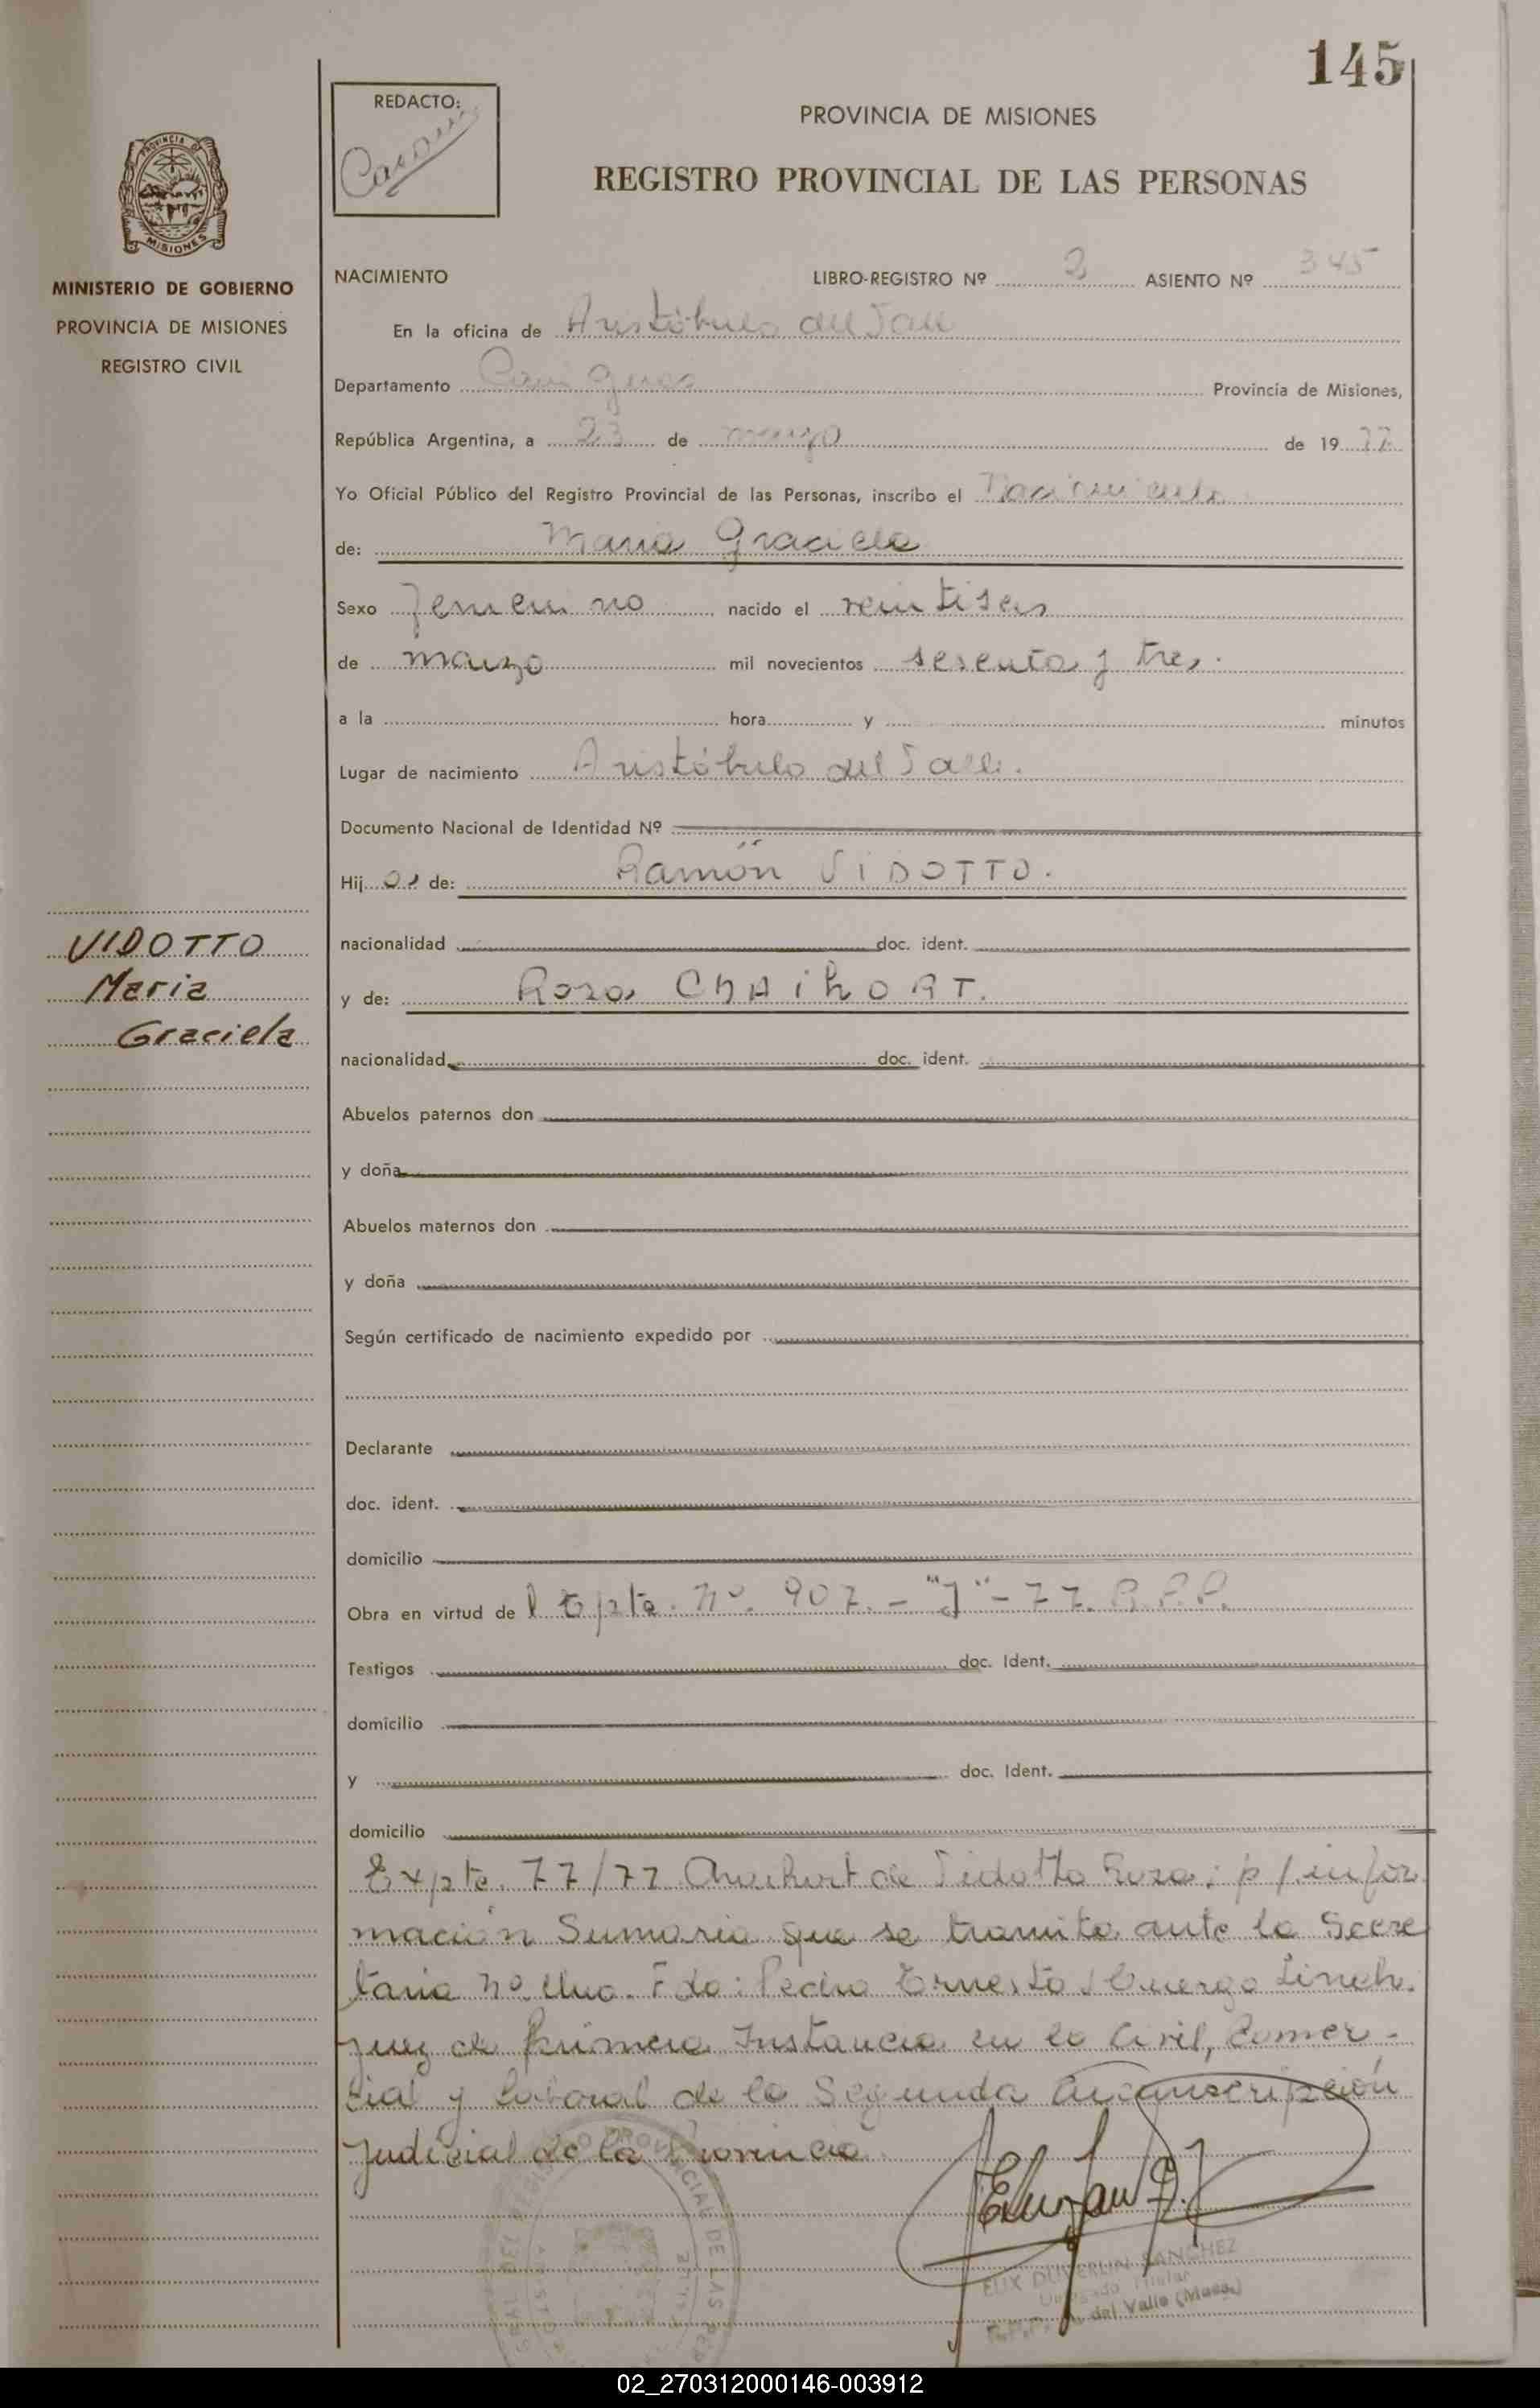 145
REDACTO:
PROVINCIA DE MISIONES
REGISTRO PROVINCIAL DE LAS PERSONAS
PROVINCIA DE
MISIONES
MINISTERIO DE GOBIERNO
PROVINCIA DE MISIONES
REGISTRO CIVIL
NACIMIENTO LIBRO-REGISTRO Nº 2 ASIENTO Nº 345
En la oficina de Aristóbulo del Valle
Departamento Cainguas Provincia de Misiones,
República Argentina, a 23 de mayo de 19 77
Yo Oficial Público del Registro Provincial de las Personas, inscribo el Nacimiento
de: Maria Graciela
Sexo Femenino nacido el veintiseis
de marzo mil novecientos sesenta y tres.
a la hora y minutos
Lugar de nacimiento Aristóbulo del Valle.
Documento Nacional de Identidad Nº
Hij a de: Ramón VIDOTTO.
nacionalidad doc. ident.
VIDOTTO
Maria
Graciela
y de: Rosa
nacionalidad doc. ident.
Abuelos paternos don
y doña
Abuelos maternos don
y doña
Según certificado de nacimiento expedido por
Declarante
doc. ident.
domicilio
Obra en virtud de l Expte. Nº. 907.-"J"-77. R.P.P.
Testigos doc. Ident.
domicilio
y doc. Ident.
domicilio
Expte. 77/77 de Vidotto Rosa: p/.infor
mación Sumaria que se tramita ante la Secre
taria nº Uno. Fdo: Pedro Ernesto Cuergo Linch.
juez de Primera Instancia en lo Civil, Comer-
cial y laboral de la Segunda Circunscripción
Judicial de la Provincia
SANCHEZ
Titular
R.P.P. A. del Valle (Mnes.)
02_270312000146-003912